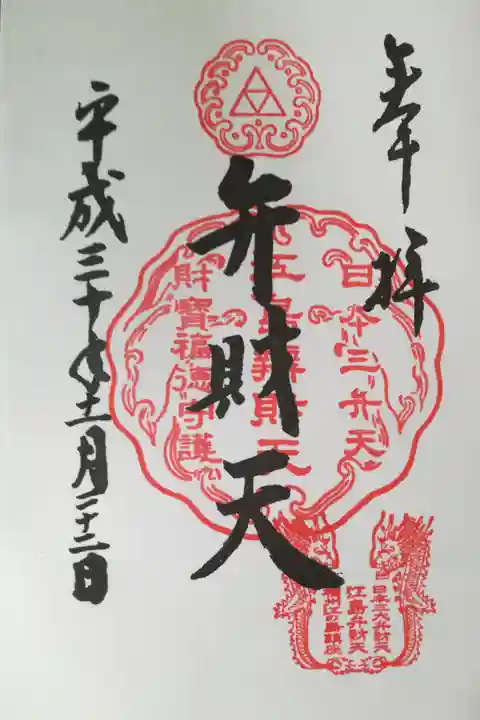 奉拝
日本三弁天
弁財天
江島辨財天
財寶福徳守護
平成三十年十一月二十二日
日本三大弁財天
江島弁財天